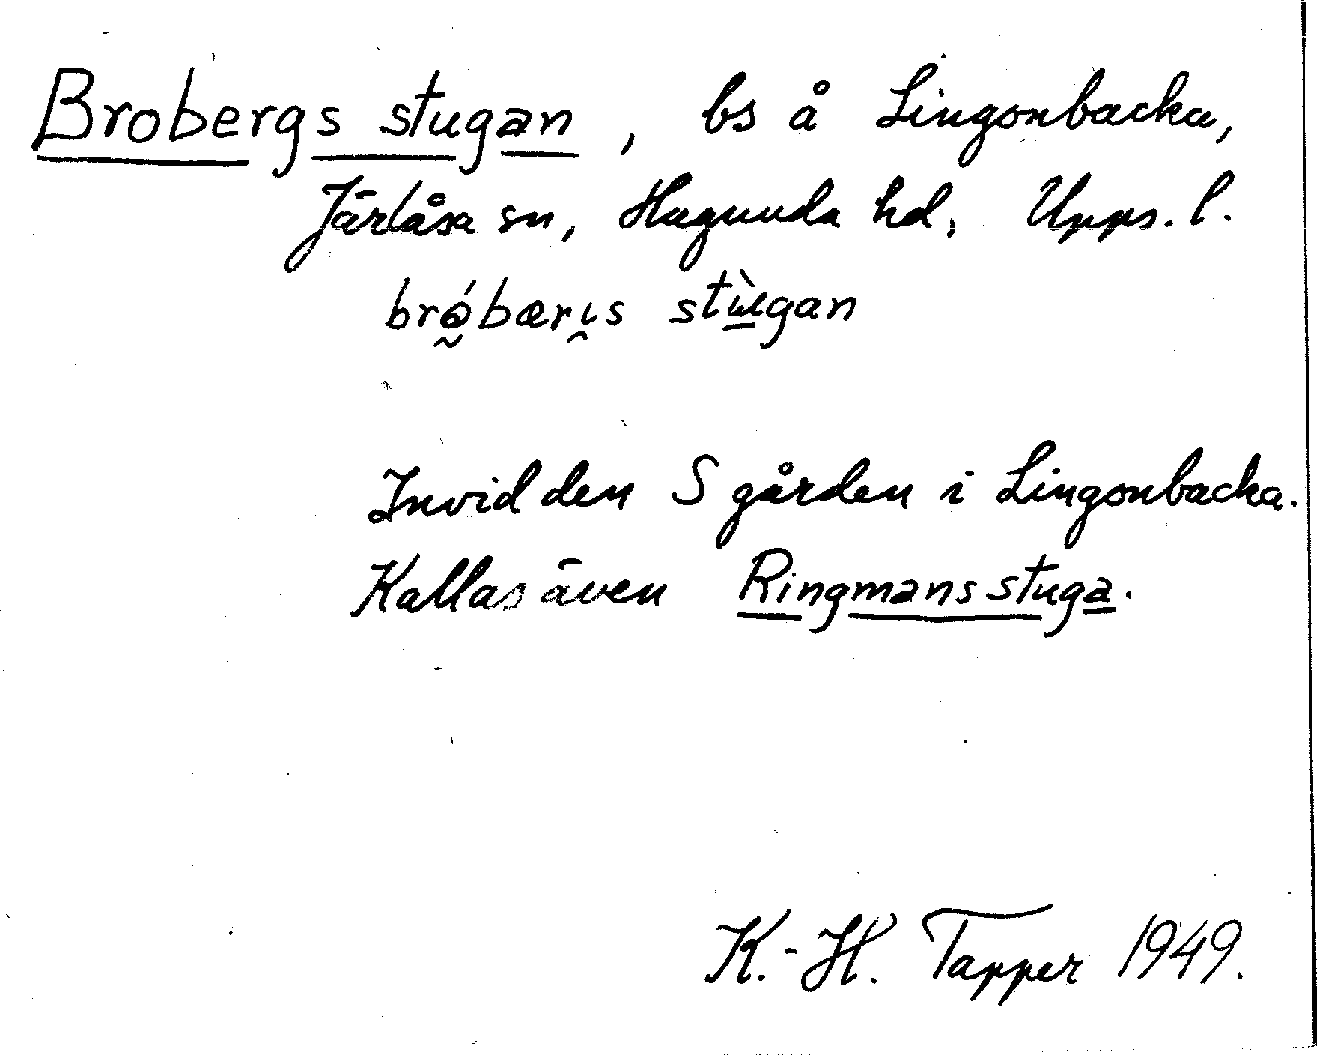 Brobergs stugan, bs å Lingonbacka,
Järlåsa sn, Hagunda hd, Upps. l.
bró̰bærı̯s stù̱gan
Invid den S gården i Lingonbacka.
Kallas även Ringmans stuga.
K.-H. Tapper 1949.